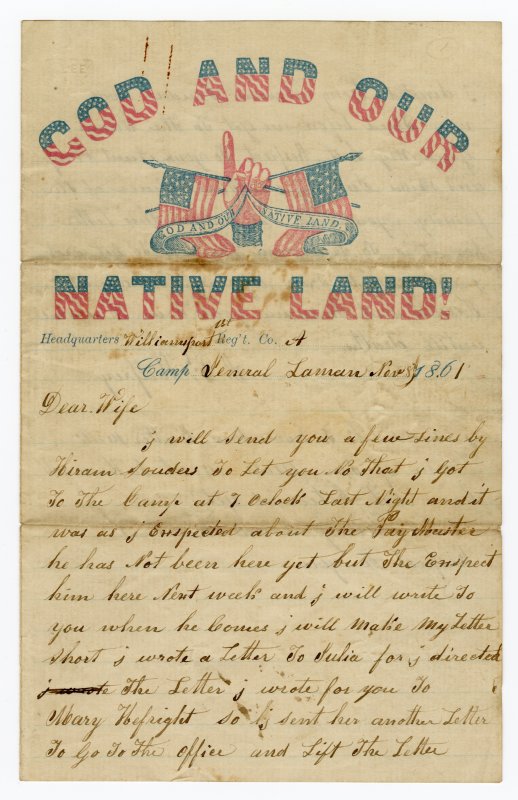 GOD AND OUR
GOD AND OUR NATIVE LAND.
NATIVE LAND!
Headquarters Williamsport Reg't. Co. A
Camp General Laman Nov 1861
Dear Wife
j will Send you a few Lines by
Hiram Souders To Let you No That j Got
To The Camp at 7 Oclock Last Night and it
was as j Enspected about The Pay Master
he has Not been here yet but The Enspect
him here Next week and j will write To
you when he Comes j will Make My Letter
Short j wrote a Letter To Julia for j directed
j wrote The Letter j wrote for you To
Mary Hefright so j sent her another Letter
To Go To The Office and Lift The Letter